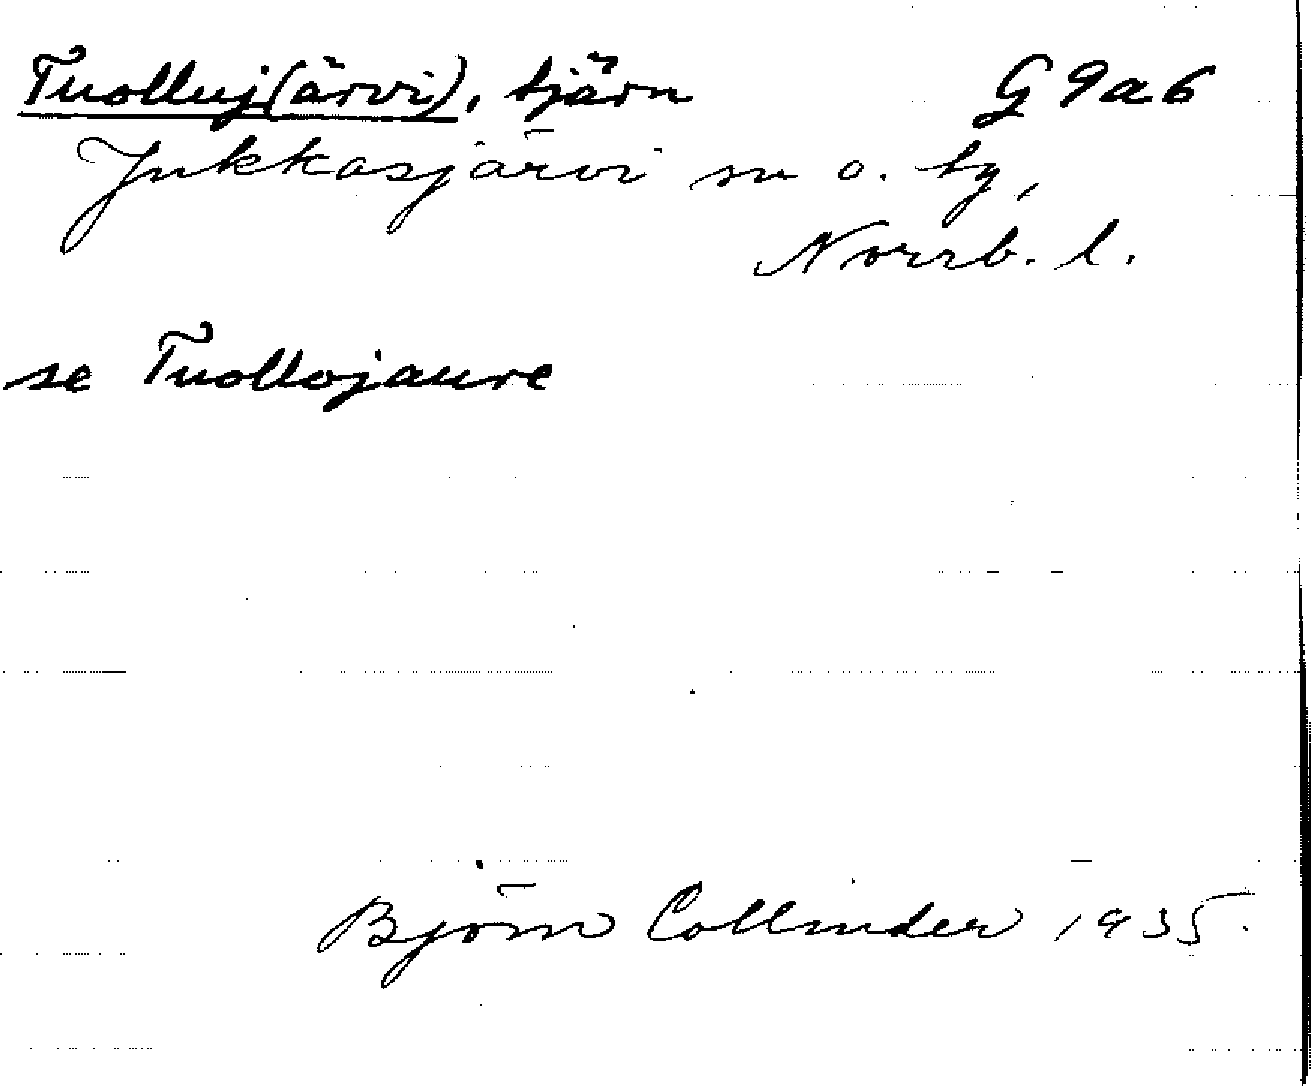 Tuolluj(ärvi), tjärn G9a6
Jukkasjärvi sn o. by,
Norrb. l.
se Tuollojaure
Björn Collinder 1935.